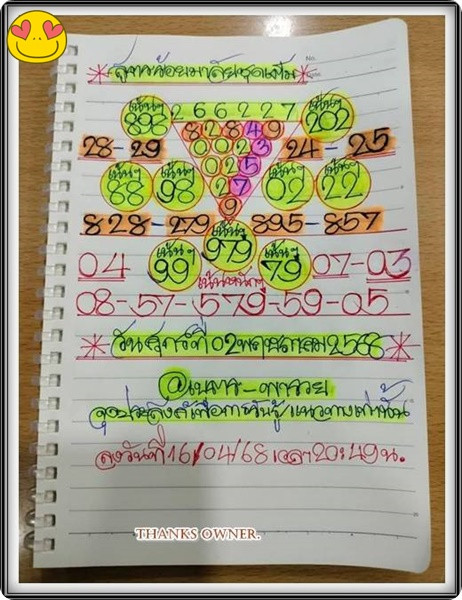 *สูตรร้อยมาลัยชุดเต็ม*
เน้นๆ 893 266227 เน้นๆ 202
82849
28-29 0023 24-25
025
เน้นๆ 88 เน้นๆ 98 27 เน้นๆ 02 เน้นๆ 22
9
828-279 895-857
เน้นๆ 979
04 เน้นๆ 99 เน้นๆ 79 07-03
เน้นหนักๆ
08-57-579-59-05
*วันศุกร์ที่ 02 พฤษภาคม 2568*
@เนตร-พารวย
จุดประสงค์เพื่อการรับรู้/แนวทางเท่านั้น
ลงวันที่ 16/04/68 เวลา 20:49 น.
THANKS OWNER.